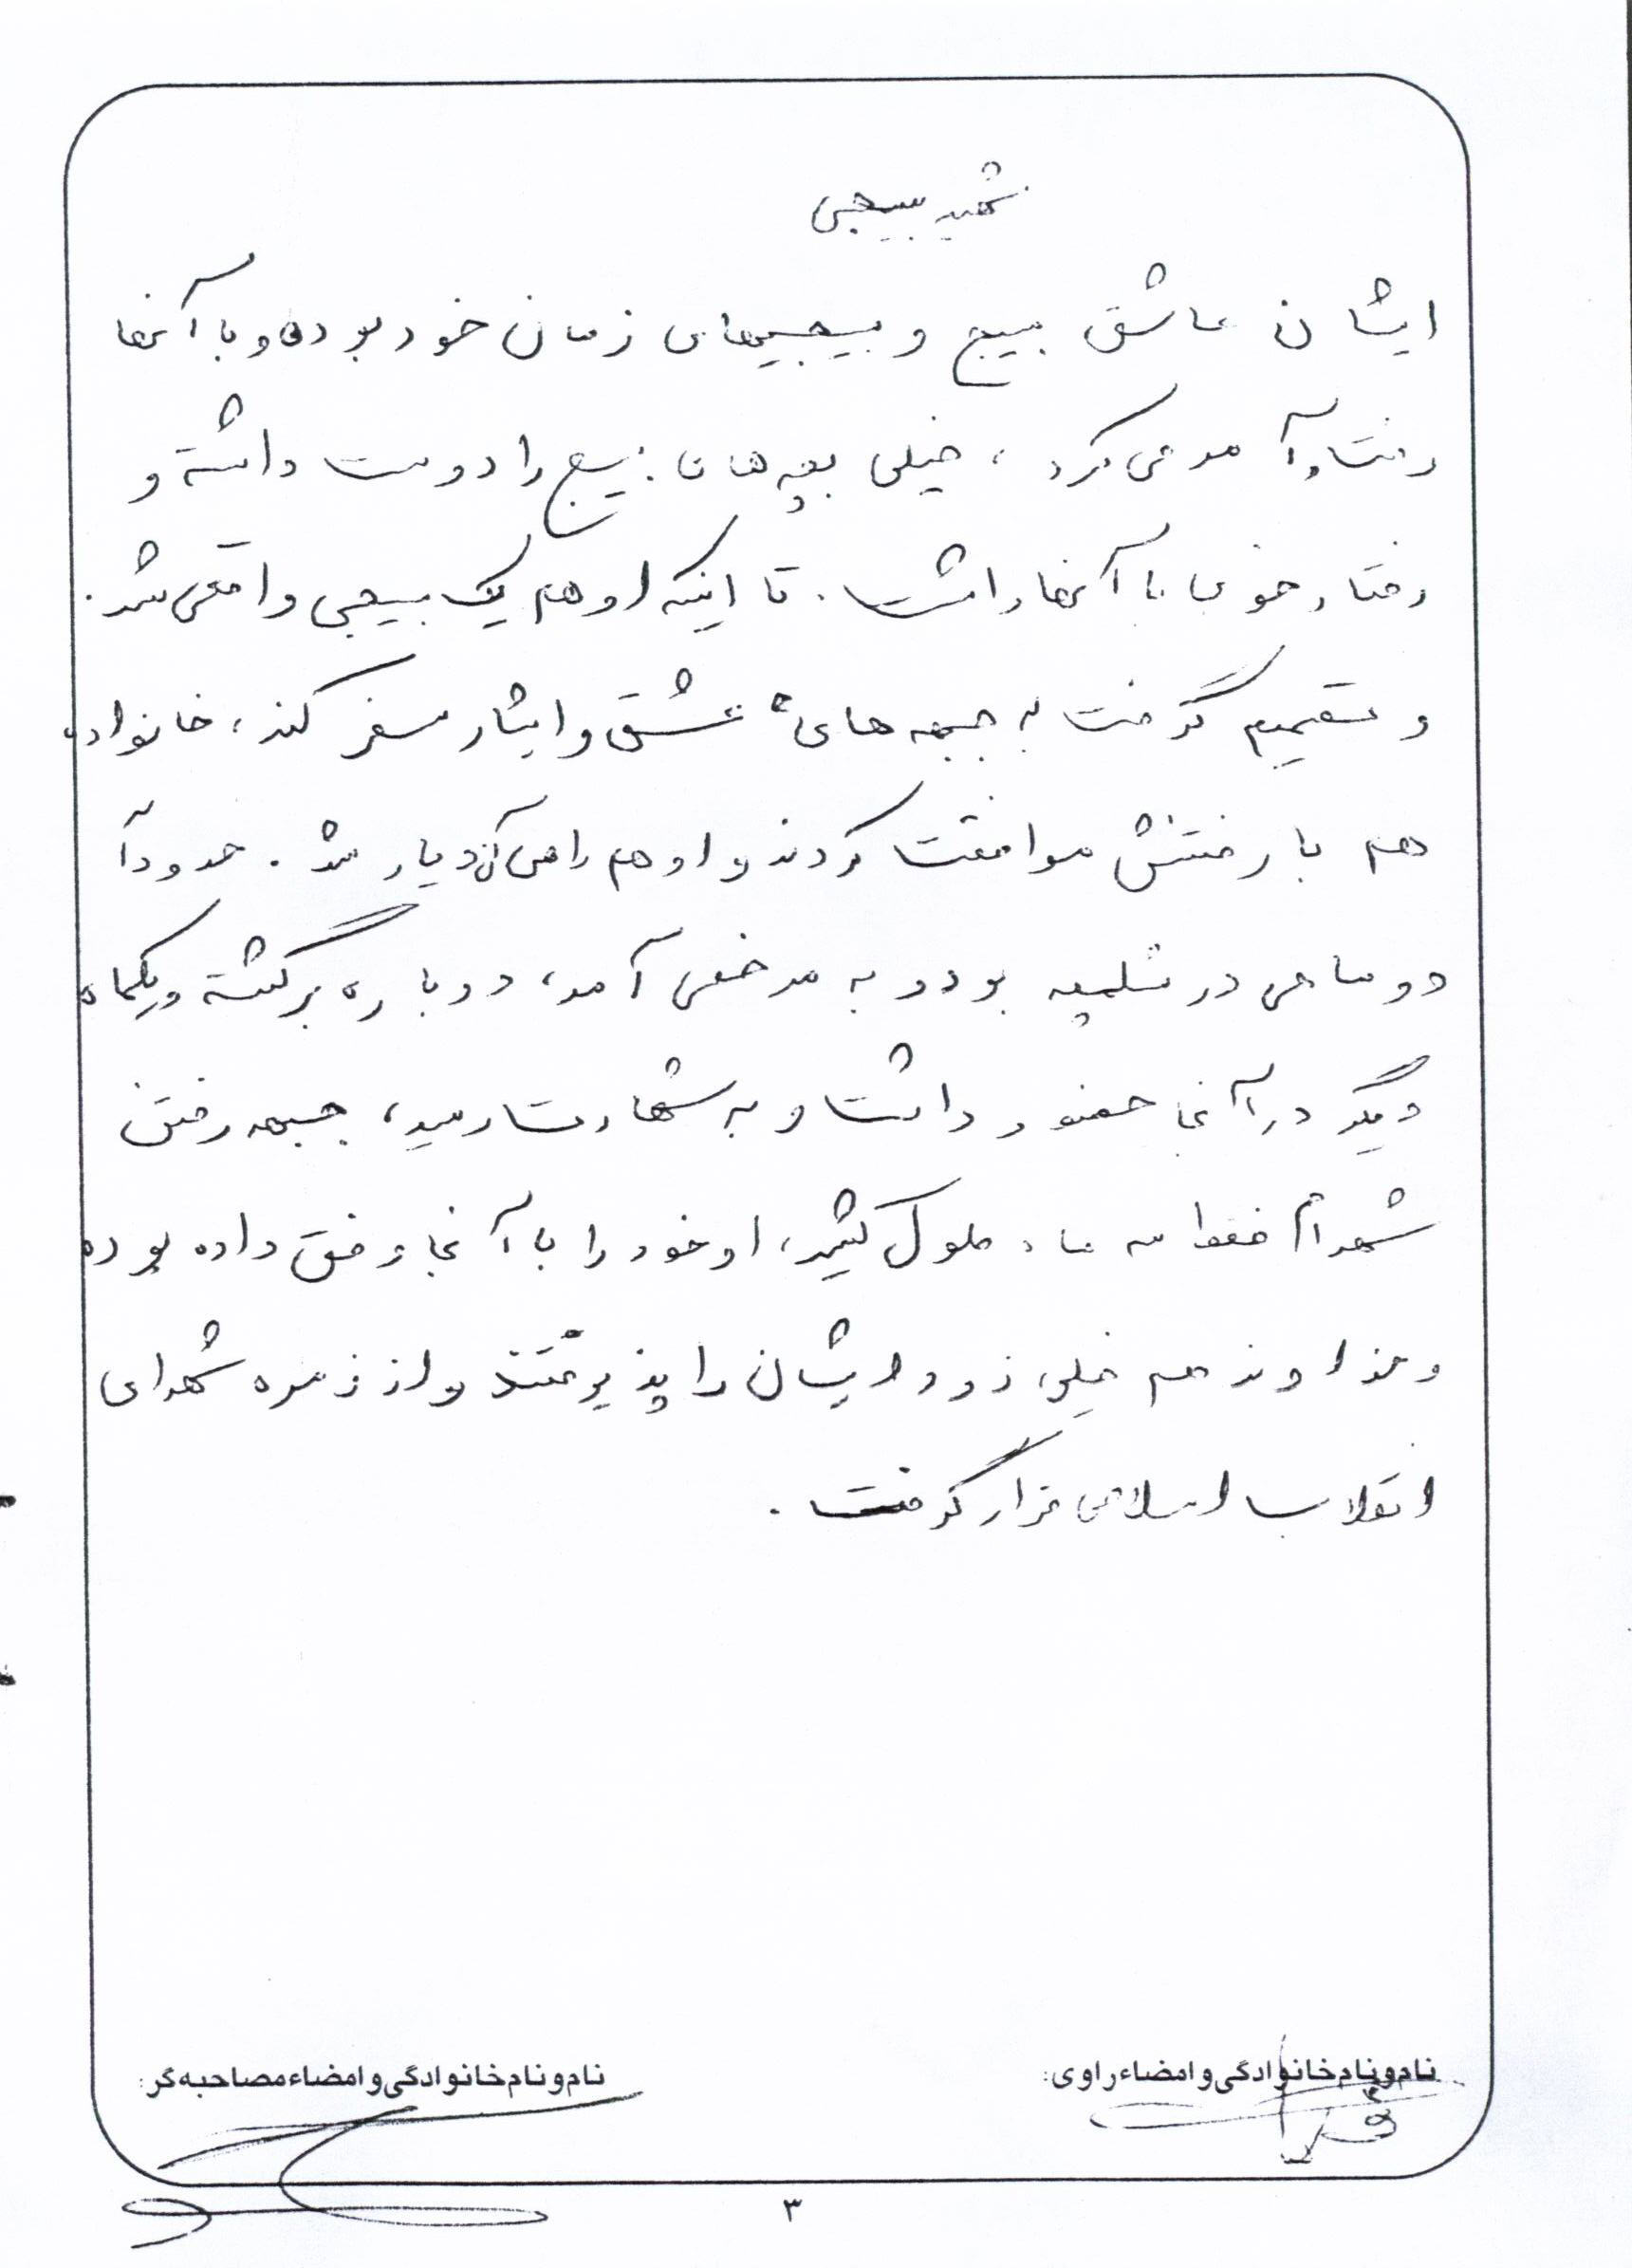 شهید بسیجی
ایشان عاشق بسیج و بسیجیهای زمان خود بوده و با آنها
رفت و آمد می کرد ، خیلی بچه های بسیج را دوست داشته و
رفتار خوبی با آنها داشت . تا اینکه او هم یک بسیجی واقعی شد .
و تصمیم گرفت به جبهه های عشق و ایثار سفر کند ، خانواده
هم با رفتنش موافقت کردند و او هم راهی آن دیار شد . حدوداً
دو ماهی در شلمچه بود و به مرخصی آمد ، دوباره برگشته و یکماه
دیگر در آنجا حضور داشت و به شهادت رسید ، جبهه رفتن
شهرام فقط سه ماه طول کشید ، او خود را با آنجا وفق داده بوده
و خداوند هم خیلی زود ایشان را پذیرفتند و از زمره شهدای
انقلاب اسلامی قرار گرفت .
نام و نام خانوادگی و امضاء راوی:
نام و نام خانوادگی و امضاء مصاحبه گر:
۳